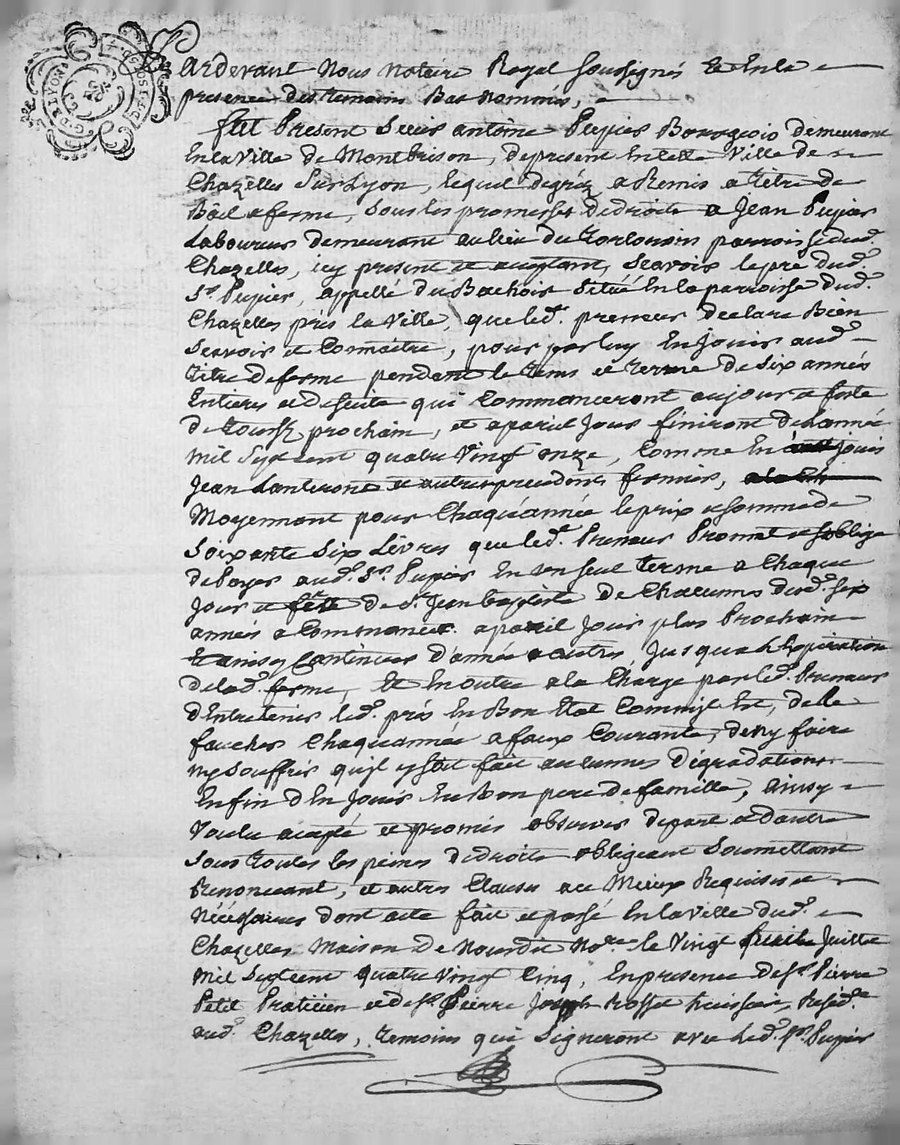 Pardevant Nous Notaire Royal soussignés et En la
presence des temoins Bas nommés,
fut Present Sieur antoine Pupier Bourgeois demeurant
En la Ville de Montbrison, de present En cette Ville de
Chazelles sur Lyon, lequel de gré a Remis a titre de
Bail a ferme, sous les promesses de droits a Jean Pupier
Laboureur demeurant au lieu du parroisse dud.
Chazelles, icy present et aceptant, scavoir le pré dud.
Sr. Pupier, appellé du Bachois situé En la parroisse dud.
Chazelles près la Ville, que led. preneur declare Bien
scavoir et Connoitre, pour par luy En jouir aud.
titre de ferme pendant le tems et terme de six années
Entieres et de suitte qui Commanceront au jour et feste
de toussts prochain, et a pareil jour finiront de l'année
mil sept cent quatre vingt onze, comme En jouit
Jean et autres precedents fermiers,
Moyennant pour Chaque année le prix et somme de
soixante six Livres que led. Preneur Promet et s'oblige
de Payer aud. Sr. Pupier En un seul terme a Chaque
jour et fête de St. Jean Baptiste de Chacunes dud. six
années a Commancer a pareil jour plus Prochain
et ainsy Continuer d'année a autres jusqua l'Expiration
de lad. ferme, Et En outre a la Charge par led. Preneur
d'Entretenir led. pré En Bon Etat Comm'il Est, de le
faucher Chaque année a faux Courante, de ny faire
ny souffrir qu'il y soit fait aucunes dégradations
Enfin d'En jouir En Bon pere de famille, ainsy
Voulu acepté et promis observer de part et d'autre
sous toutes les peines de droits obligeant soumettant
Renonceant, et autres Clauses a ce Mieux Requises et
Nécéssaires dont acte fait et passé En la Ville dud.
Chazelles Maison de Nourdin Nore. le Vingt Juillet
mil sept cent quatre vingt Cinq, En presence de Sr. Pierre
Petit Praticien et de Sr. Pierre Joseph Rosset huissier, Resid.
aud. Chazelles, temoins qui signeront avec led. Sr. Pupier